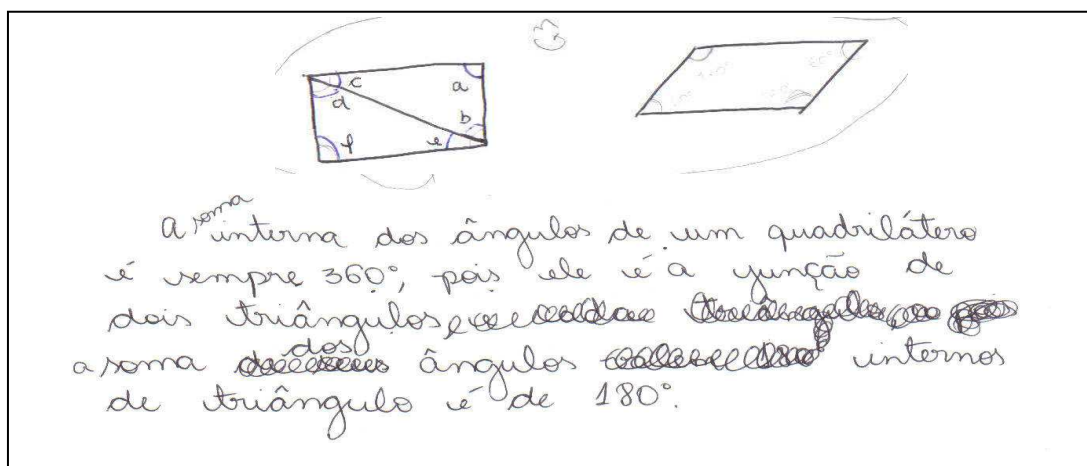 c a
d b
f e
A soma interna dos ângulos de um quadrilátero
é sempre 360°, pois ele é a junção de
dois triângulos,
a soma dos ângulos internos
de triângulo é de 180°.